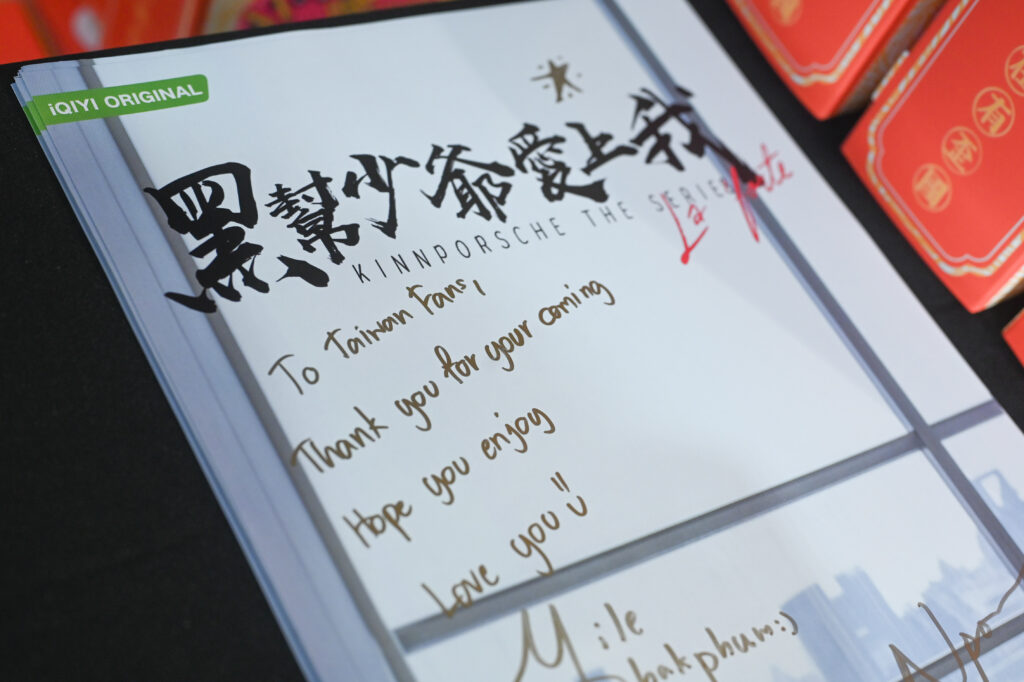 iQIYI ORIGINAL
黑幫少爺愛上我
KINNPORSCHE THE SERIES
La forte
To Taiwan Fans,
Thank you for your coming
Hope you enjoy
Love you
Mile
Phakphum:)
有